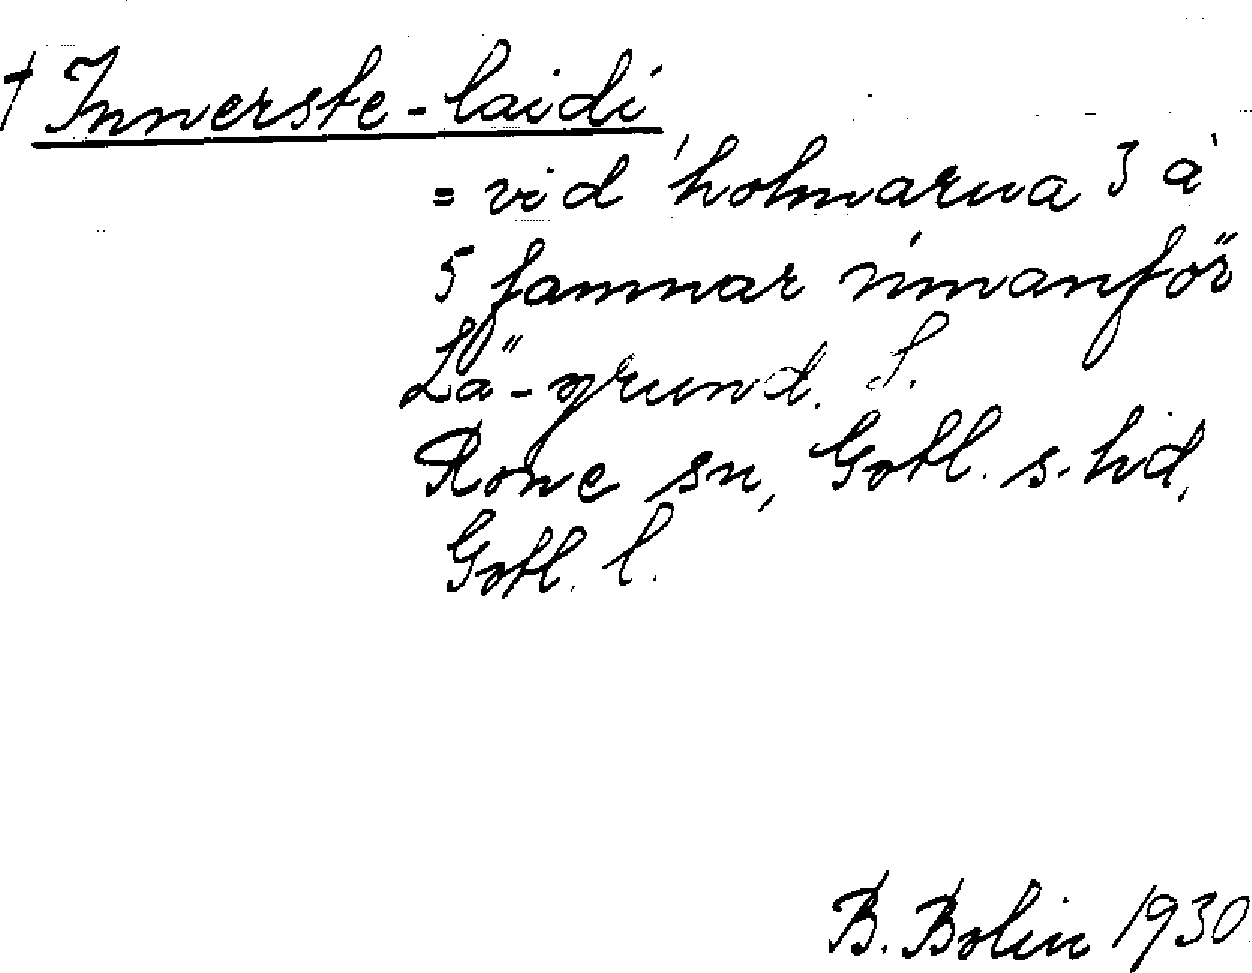 † Innerste-laidi
= vid holmarna 3 à
5 famnar innanför
Lä-grund. S.
Rone sn, Gotl. s. hd,
Gotl. l.
B. Bolin 1930.